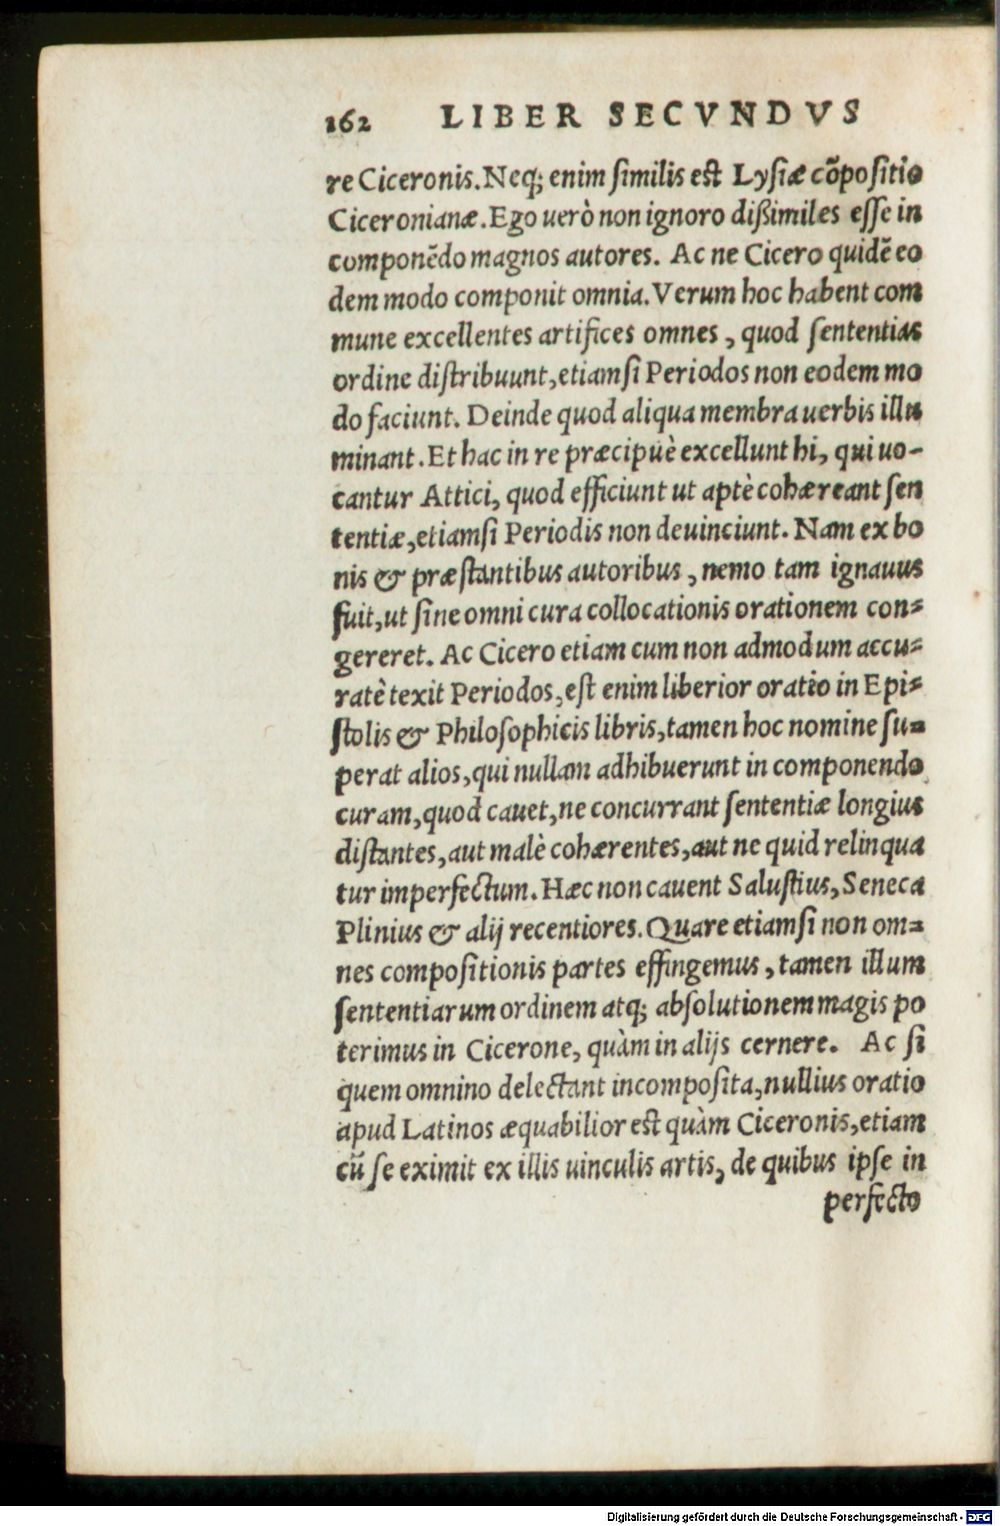 162 LIBER SECVNDVS
re Ciceronis. Neq; enim ſimilis est Lyſiæ cõpoſitio
Ciceronianæ. Ego uerò non ignoro dißimiles eſſe in
componẽdo magnos autores. Ac ne Cicero quidẽ eo
dem modo componit omnia. Verum hoc habent com
mune excellentes artifices omnes, quod ſententias
ordine diſtribuunt, etiamſi Periodos non eodem mo
do faciunt. Deinde quod aliqua membra uerbis illu
minant. Et hac in re præcipuè excellunt hi, qui uo-
cantur Attici, quod efficiunt ut aptè cohæreant ſen
tentiæ, etiamſi Periodis non deuinciunt. Nam ex bo
nis & præſtantibus autoribus, nemo tam ignauus
fuit, ut ſine omni cura collocationis orationem con=
gereret. Ac Cicero etiam cum non admodum accu=
ratè texit Periodos, eſt enim liberior oratio in Epi=
ſtolis & Philoſophicis libris, tamen hoc nomine ſu=
perat alios, qui nullam adhibuerunt in componendo
curam, quod cauet, ne concurrant ſententiæ longius
diſtantes, aut malè cohærentes, aut ne quid relinqua
tur imperfectum. Hæc non cauent Saluſtius, Seneca
Plinius & alij recentiores. Quare etiamſi non om=
nes compoſitionis partes effingemus, tamen illum
ſententiarum ordinem atq; abſolutionem magis po
terimus in Cicerone, quàm in alijs cernere. Ac ſi
quem omnino delectant incompoſita, nullius oratio
apud Latinos æquabilior est quàm Ciceronis, etiam
cũ ſe eximit ex illis uinculis artis, de quibus ipſe in
perfecto
Digitalisierung gefördert durch die Deutsche Forschungsgemeinschaft - DFG